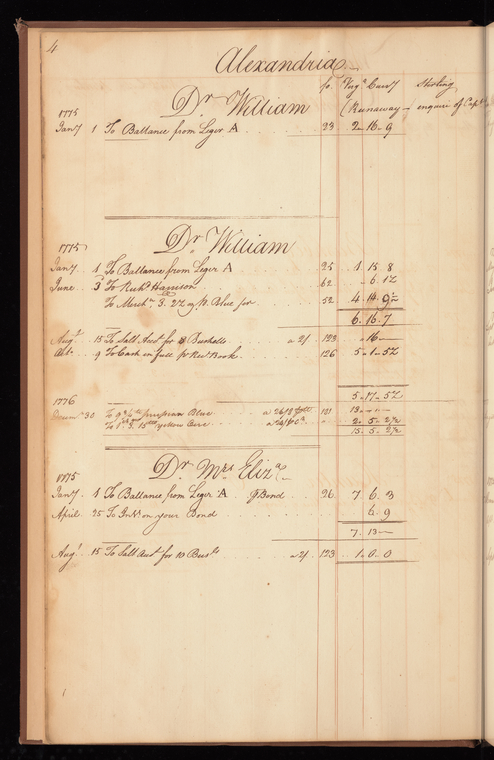 4
Alexandria
fo. Virga Curry Sterling
1775 Dr William (Runaway — enquire of Capt
Jany 1 To Ballance from Leger A 23 2 16 9
1775 Dr William
Jany 1 To Ballance from Leger A 25 1 15 8
June 3 To Richd Harrison 62 6 1½
To Merchze 3. 2/2 oz P. Blue for 52 4 14 9½
6. 16. 7
Augt 15 To Salt Acct for 8 Bushells a 2/ 123 16
Octr 9 To Cash in full pr Rect Book 126 5 1 5½
5 17 5½
1776
30 prussian Blue a 26/8 101 13
yellow Ocre 2 5 2½
15 5 2½
1775 Dr Mrs Eliza
Jany 1 To Ballance from Leger A Bond 26 7 6 3
April 25 To Intt on your Bond 6 9
7 13 —
Augt 15 To Salt Acct for 10 Bushs a 2/ 123 1 0 0